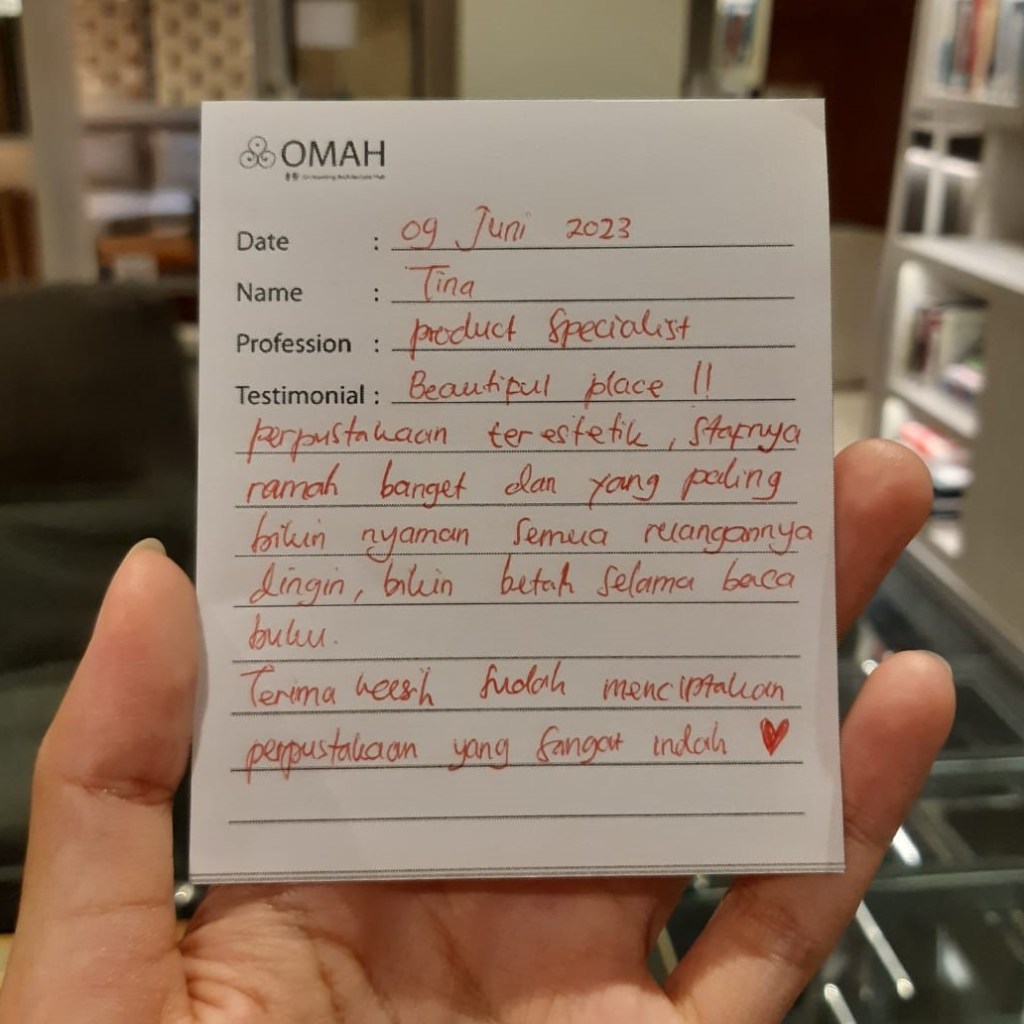 OMAH
Date : 09 Juni 2023
Name : Tina
Profession : product specialist
Testimonial : Beautiful place !!
perpustakaan terestetik, stafnya
ramah banget dan yang paling
bikin nyaman semua ruangannya
dingin, bikin betah selama baca
buku.
Terima kasih sudah menciptakan
perpustakaan yang sangat indah ♥